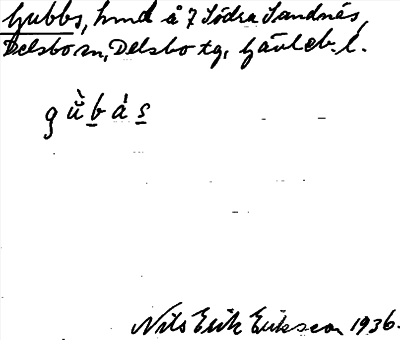 Gubbs, hmd å 7 Södra Sandnäs,
Delsbo sn, Delsbo tg, Gävleb. l.
g ǜ b á s
Nils Erik Eriksson 1936.